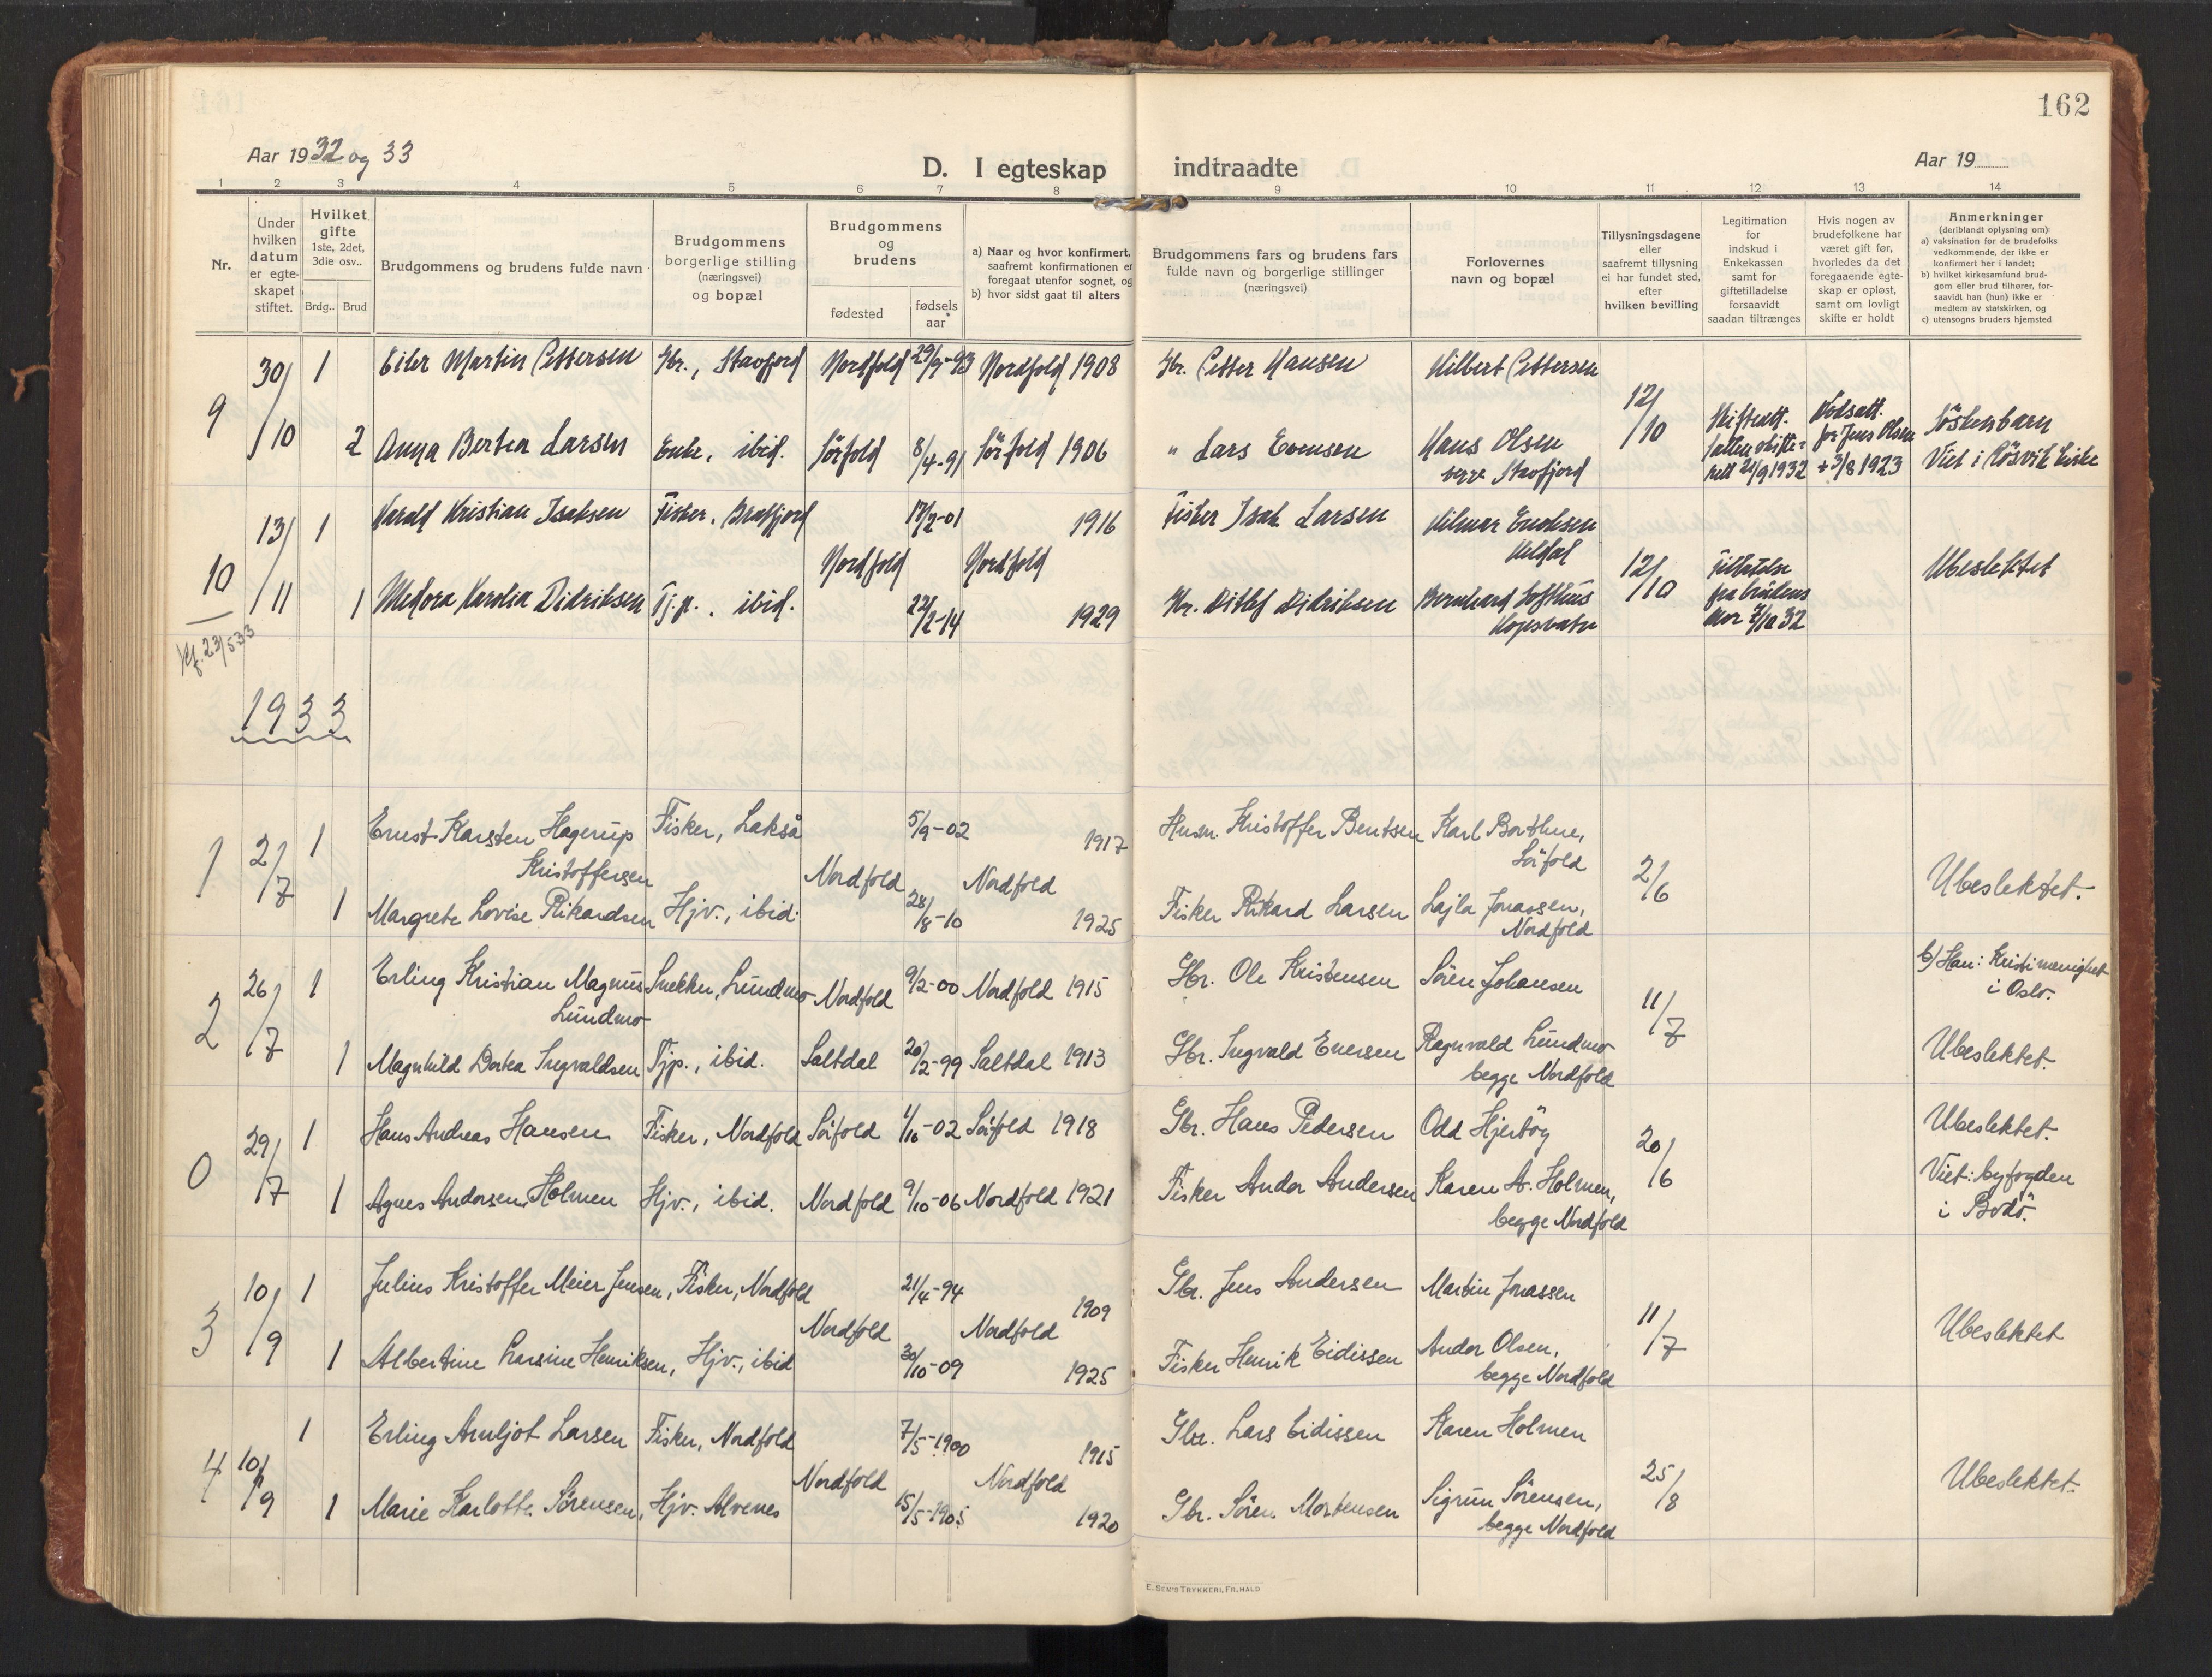 162
Aar 1932 og 33
D. I egteskap indtraadte
Aar 19
1 2 3 4 5 6 7 8 9 10 11 12 13 14
Nr.
Under hvilken datum er egteskapet stiftet.
Hvilket gifte 1ste, 2det, 3die osv..
Brdg.. Brud
Brudgommens og brudens fulde navn
Brudgommens borgerlige stilling (næringsvei) og bopæl
Brudgommens og brudens
fødested
fødselsaar
a) Naar og hvor konfirmert, saafremt konfirmationen er foregaat utenfor sognet, og
b) hvor sidst gaat til alters
Brudgommens fars og brudens fars fulde navn og borgerlige stillinger (næringsvei)
Forlovernes navn og bopæl
Tillysningsdagene eller saafremt tillysning ei har fundet sted, efter hvilken bevilling
Legitimation for indskud i Enkekassen samt for giftetilladelse forsaavidt saadan tiltrænges
Hvis nogen av brudefolkene har været gift før, hvorledes da det foregaaende egteskap er opløst, samt om lovligt skifte er holdt
Anmerkninger (deriblandt oplysning om):
a) vaksination for de brudefolks vedkommende, der ikke er konfirmert her i landet;
b) hvilket kirkesamfund brudgom eller brud tilhører, forsaavidt han (hun) ikke er medlem av statskirken, og
c) utensogns bruders hjemsted
9 30/10 1 Eiler Martin Pettersen Gbr., Stavfjord Nordfold 29/9-93 Nordfold 1908 Gbr. Petter Hansen Hilbert Pettersen 12/10
2 Anna Bertea Larsen Enke, ibid. Sørfold 8/4-91 Sørfold 1906 " Lars Evensen Hans Olsen
Stavfjord
21/9 1932
for Jens Olsen
+ 3/8 1923
Söskenbarn
Viet i Rösvik kirke
10 13/11 1 Harald Kristian Isaksen Fisker, 17/2-01 1916 Fisker Isak Larsen Hilmar
Nordfold Nordfold
1 Medora Karolia Didriksen Tj.p., ibid. 22/2-14 1929 Gbr. Ditlef Didriksen Bernhard Lofthus
12/10
Tillatelse fra brudens mor 7/10 32
Ubeslektet
1933
1 2/7 1 Ernst Karsten Hagerup Kristoffersen Fisker, Lakså 5/9-02 1917 Husm. Kristoffer Bentsen Karl
Nordfold Nordfold
Sörfold
2/6
1 Margrete Lovise Rikardsen Hjv., ibid. 28/8-10 1925 Fisker Rikard Larsen Lajla Jonassen, Nordfold
Ubeslektet.
2 26/7 1 Erling Kristian Magnus Lundmo Snekker, Lundmo Nordfold 9/2-00 Nordfold 1915 Gbr. Ole Kristensen Sören Johansen
11/7
b) Han: Kristi menighet i Oslo.
1 Magnhild Dortea Ingvaldsen Tjp., ibid. Saltdal 20/2-99 Saltdal 1913 Gbr. Ingvald Evensen Ragnvald Lundmo
begge Nordfold
Ubeslektet.
0 29/7 1 Hans Andreas Hansen Fisker, Nordfold Sörfold 1/10-02 Sörfold 1918 Gbr. Hans Pedersen Odd Hjertöy
20/6
Ubeslektet.
1 Agnes Andorsen Holmen Hjv., ibid. Nordfold 9/10-06 Nordfold 1921 Fisker Andor Andersen Karen A. Holmen,
begge Nordfold
Viet: byfogden i Bodö.
3 10/9 1 Julius Kristoffer Meier Jensen, Fisker, Nordfold 21/4-94 1909 Gbr. Jens Andersen Martin Jonassen
Nordfold Nordfold
11/7
1 Albertine Larsine Henriksen, Hjv., ibid 30/10-09 1925 Fisker Henrik Eidissen Andor Olsen,
begge Nordfold
Ubeslektet
4 10/9 1 Erling Arnljot Larsen Fisker, Nordfold 7/5-1900 1915 Gbr. Lars Eidissen Karen Holmen
Nordfold Nordfold
25/8
1 Marie Karlotte Sörensen, Hjv. Alvenes 15/5-1905 1920 Gbr. Sören Mortensen Sigrun Sörensen,
begge Nordfold
Ubeslektet.
E. SEM'S TRYKKERI, FR.HALD